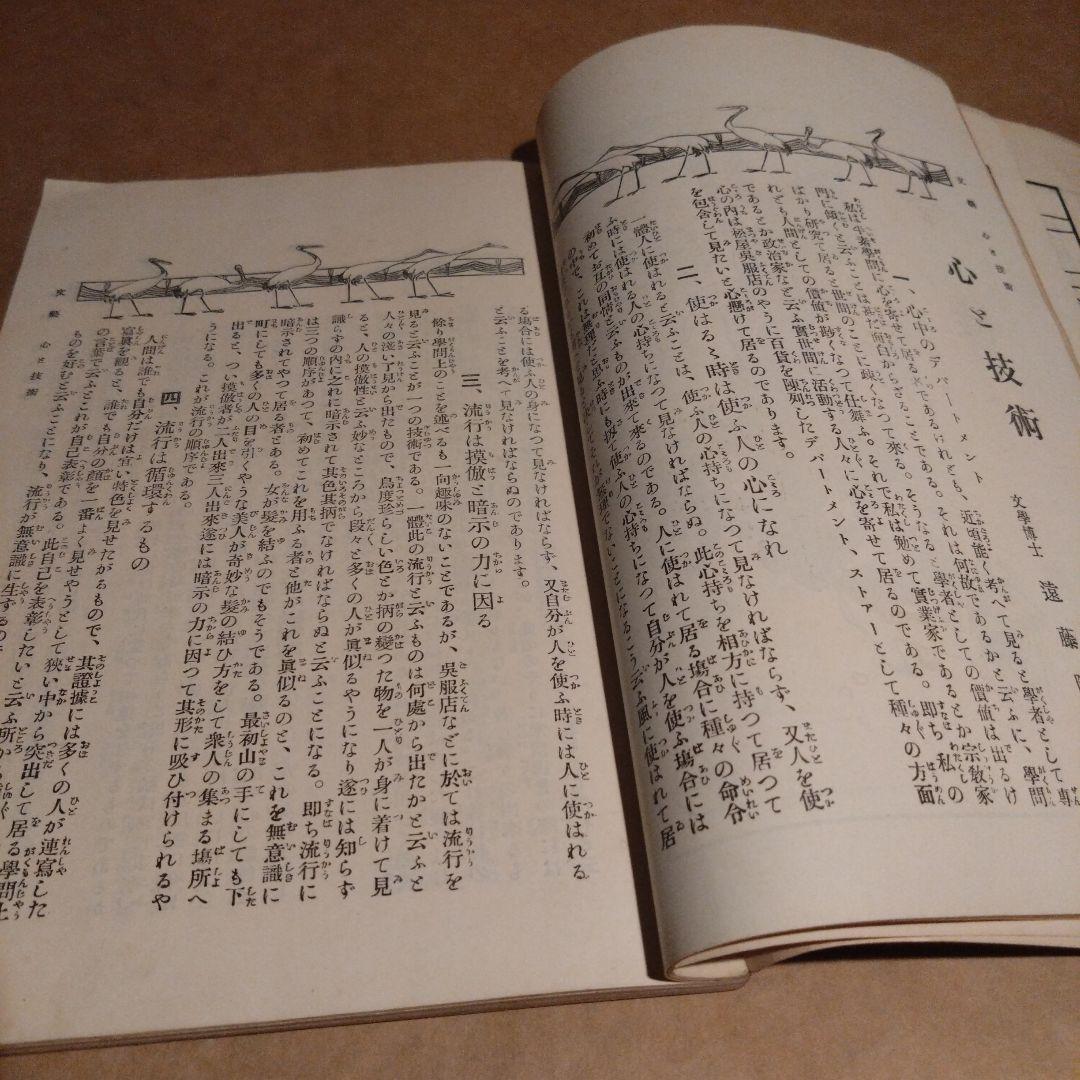 文藝 心と技術
心と技術
文學博士 遠藤隆
一、心中のデパートメント
私は牛素學問に心を寄せて居る次第であるけれども、近頃能く考へて見ると學者として專
門に傾くと云ふことは甚だ面白からざることである。それは何故であるかと云ふに、學問
ばかり研究して居ると世間のことに疎くなつて來る。そうなると學者としての價値は出るけ
れども人間としての價値が尠くなつて仕舞ふ。それで私は勉めて實業家であるとか宗敎家
であるとか政治家など云ふ實世間に活動する人々に心を寄せて居るのである。即ち私の
心の內は松屋吳服店のやうに百貨を陳列したデパートメント、ストアーとして種々の方面
を包含して見たいと心懸けて居るのであります。
二、使はるゝ時は使ふ人の心になれ
一體人に使はれると云ふことは、使ふ人の心持ちになつて見なければならず、又人を使
ふ時には使はれる人の心持ちになつて見なければならぬ。此心持ちを相方に持つて居つて
初めてお互の同情と云ふものが出來て來るのである。人に使はれて居る場合に種々の命分
る場合には使ふ人の身になつて見なければならず、又自分が人を使ふ時には人に使はれる
と云ふことを考へて見なければならぬのであります。
三、流行は摸倣と暗示の力に因る
餘り學問上のことを述べるも一向趣味のないことであるが、吳服店などに於ては流行を
見ると云ふことが一つの技術である。一體此の流行と云ふものは何處から出たかと云ふと
人々の淺い了見から出たもので、鳥度珍らしい色とか柄の變つた物を一人が身に着けて見
ると、人の摸倣性と云ふ妙なところから段々と多くの人が眞似るやうになり遂には知らず
識らずの內に之れに暗示されて其色其柄でなければならぬと云ふことになる。即ち流行に
は三つの順序があつて、初めてこれを用ふる者と他がこれを眞似るのと、これを無意識に
暗示されてやつて居る者とある。女が髮を結ふのでもそうである。最初山の手にしても下
町にしても多くの人の目を引くやうな美人が奇妙な髮の結ひ方をして衆人の集まる塲所へ
出ると、つい摸倣者が一人出來三人出來遂には暗示の力に因つて其形に吸ひ付けられるや
うになる。これが流行の順序である。
四、流行は循環するもの
人間は誰でも自分だけは宜い特色を見せたがるもので、其證據には多くの人が連寫した
寫眞を觀ると、誰でも自分の顏を一番よく見せやうとして狹い中から突出して居る學問上
の言葉で云ふとこれが自己表彰である。此自己を表彰したいと云ふ所から
ものを好むと云ふことになり、流行が無意識に生ずるので
文藝 心と技術